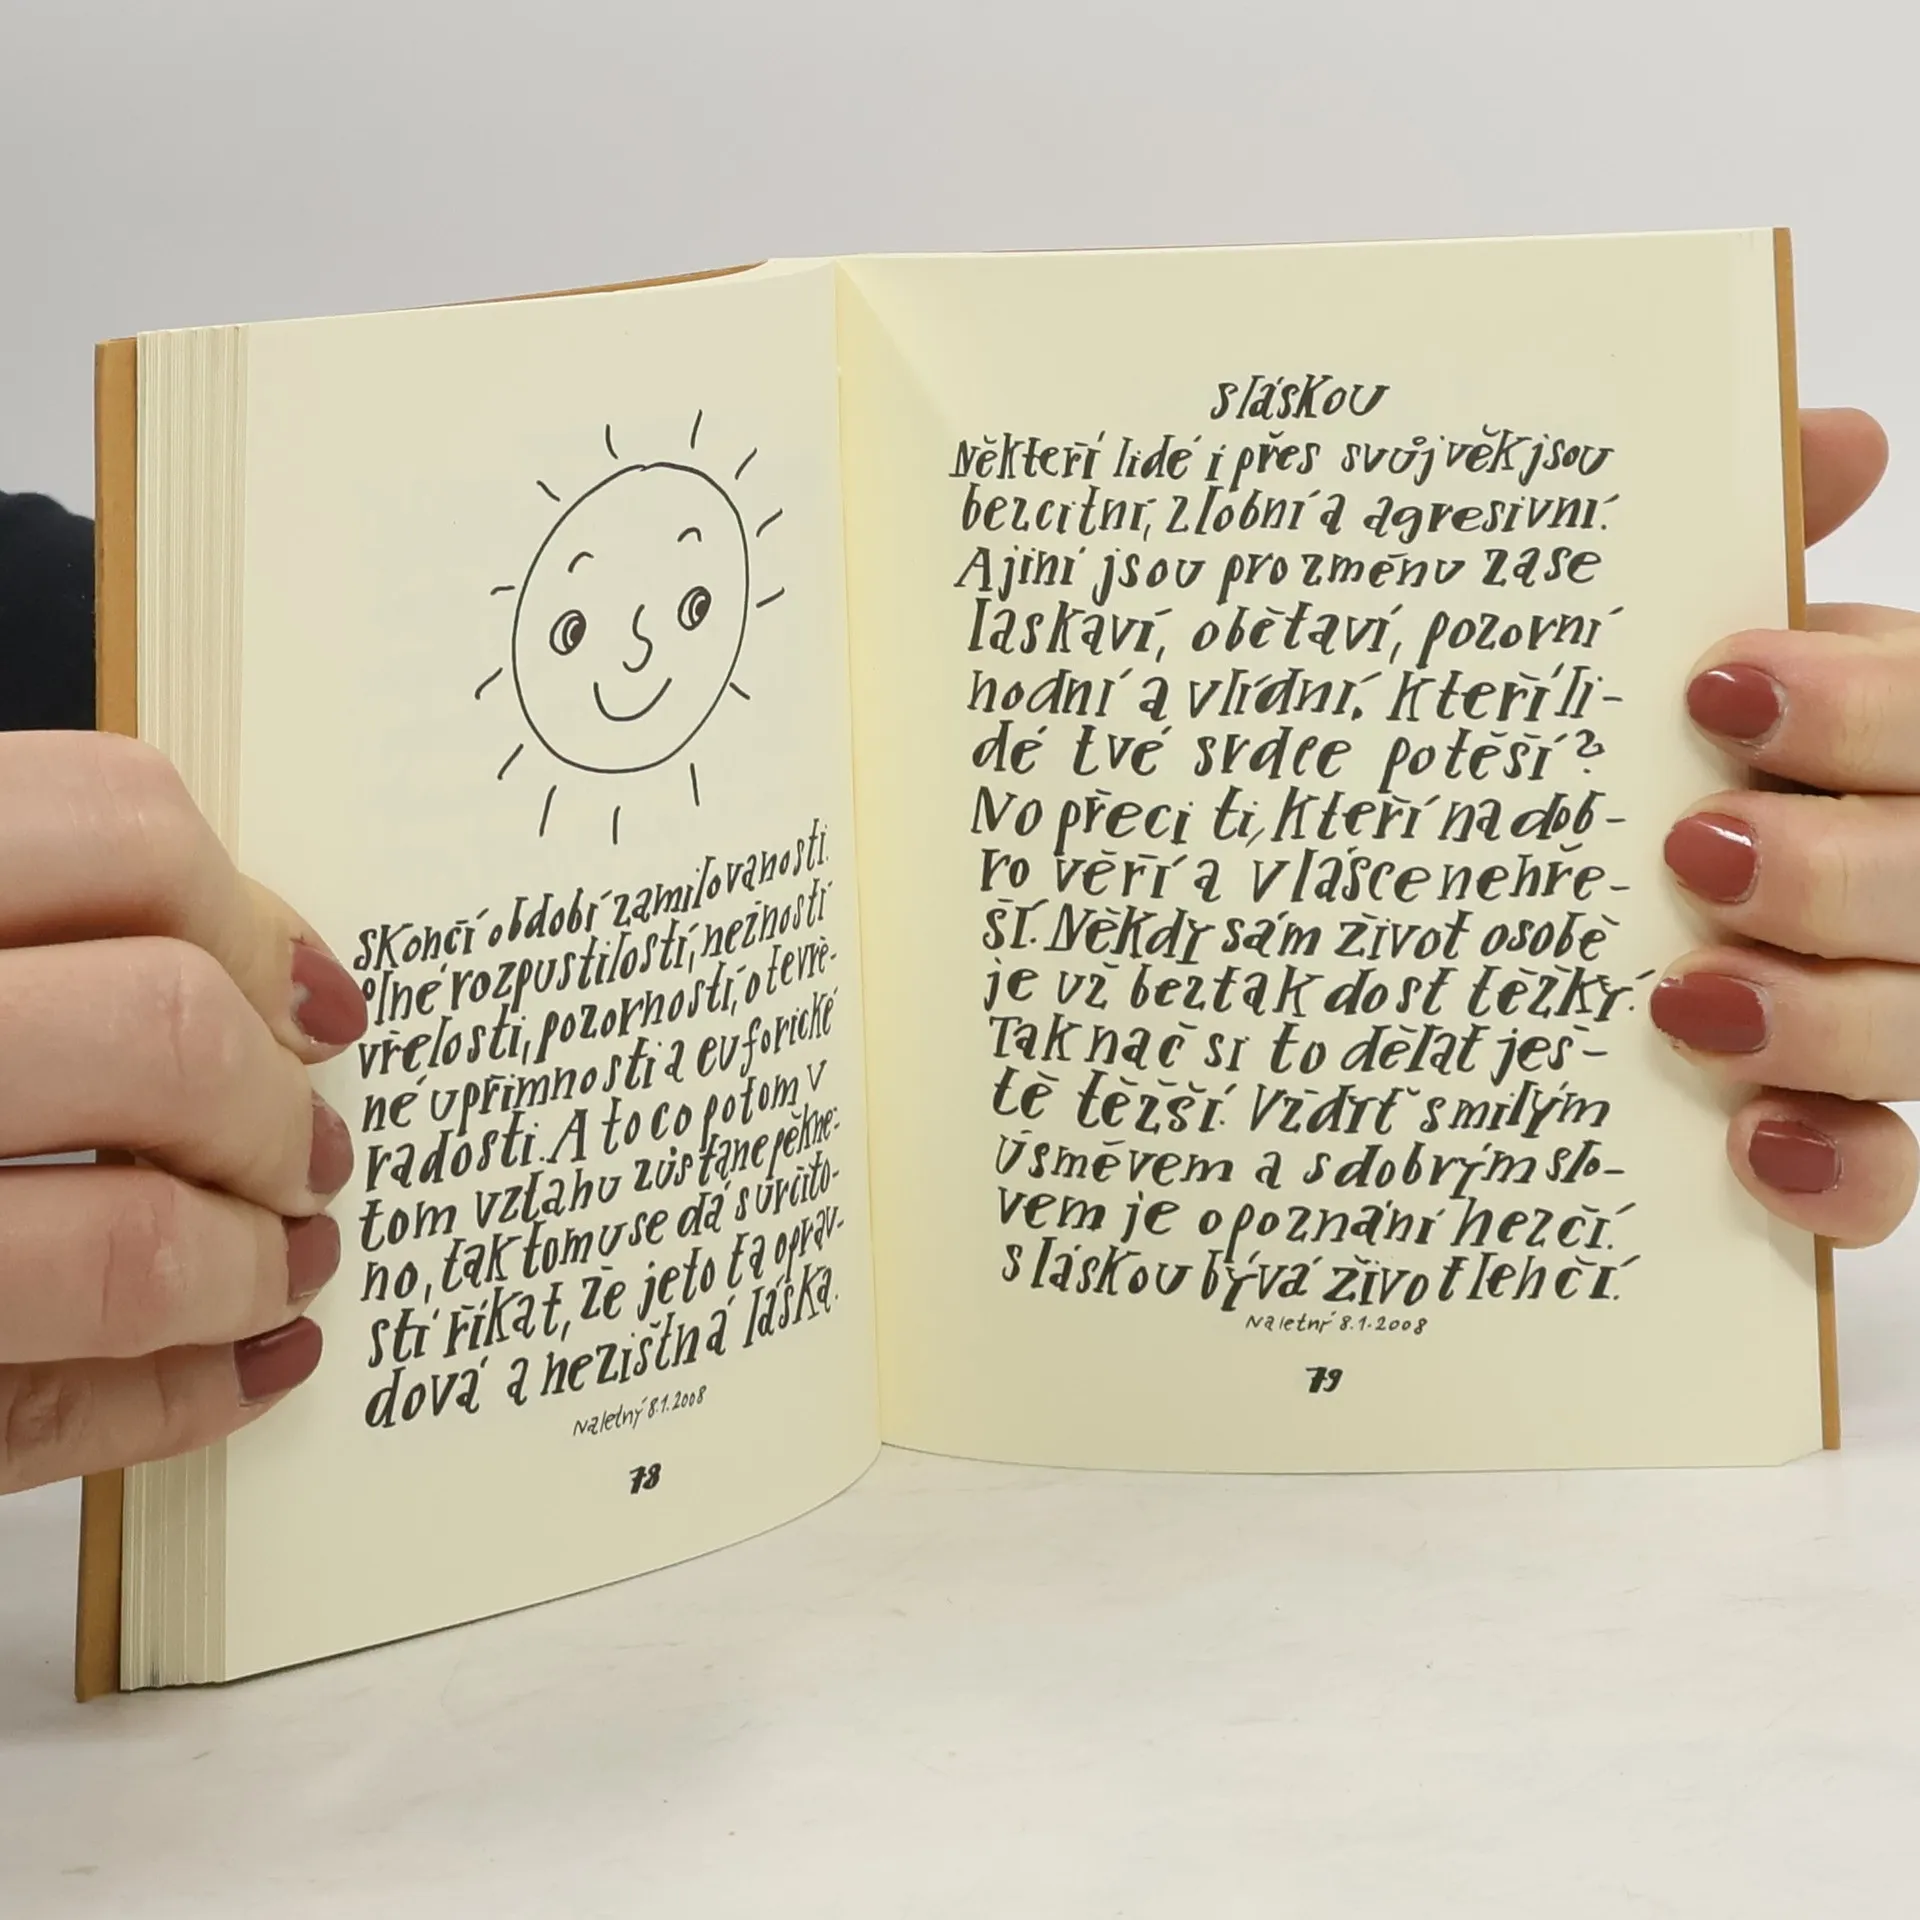 skončí období zamilovanosti.
plné rozpustilosti, nežnosti
vřelosti, pozornosti, otevře-
né upřímnosti a euforické
radosti. A to co potom v
tom vztahu zůstane pěkné-
ho, tak tomu se dá s určito-
stí říkat, že je to ta oprav-
dová a nezištná láska.
Naletný 8.1.2008
78
s láskou
Někteří lidé i přes svůj věk jsou
bezcitní, zlobní a agresivní.
A jiní jsou pro změnu zase
laskaví, obětaví, pozorní
hodní a vlídní. Kteří li-
dé tvé srdce potěší?
No přeci ti, kteří na dob-
ro věří a v lásce nehře-
ší. Někdy sám život osobě
je už beztak dost těžký.
Tak nač si to dělat ješ-
tě těžší. Vždyť s milým
úsměvem a s dobrým slo-
vem je o poznání hezčí.
s láskou bývá život lehčí.
Naletný 8.1.2008
79